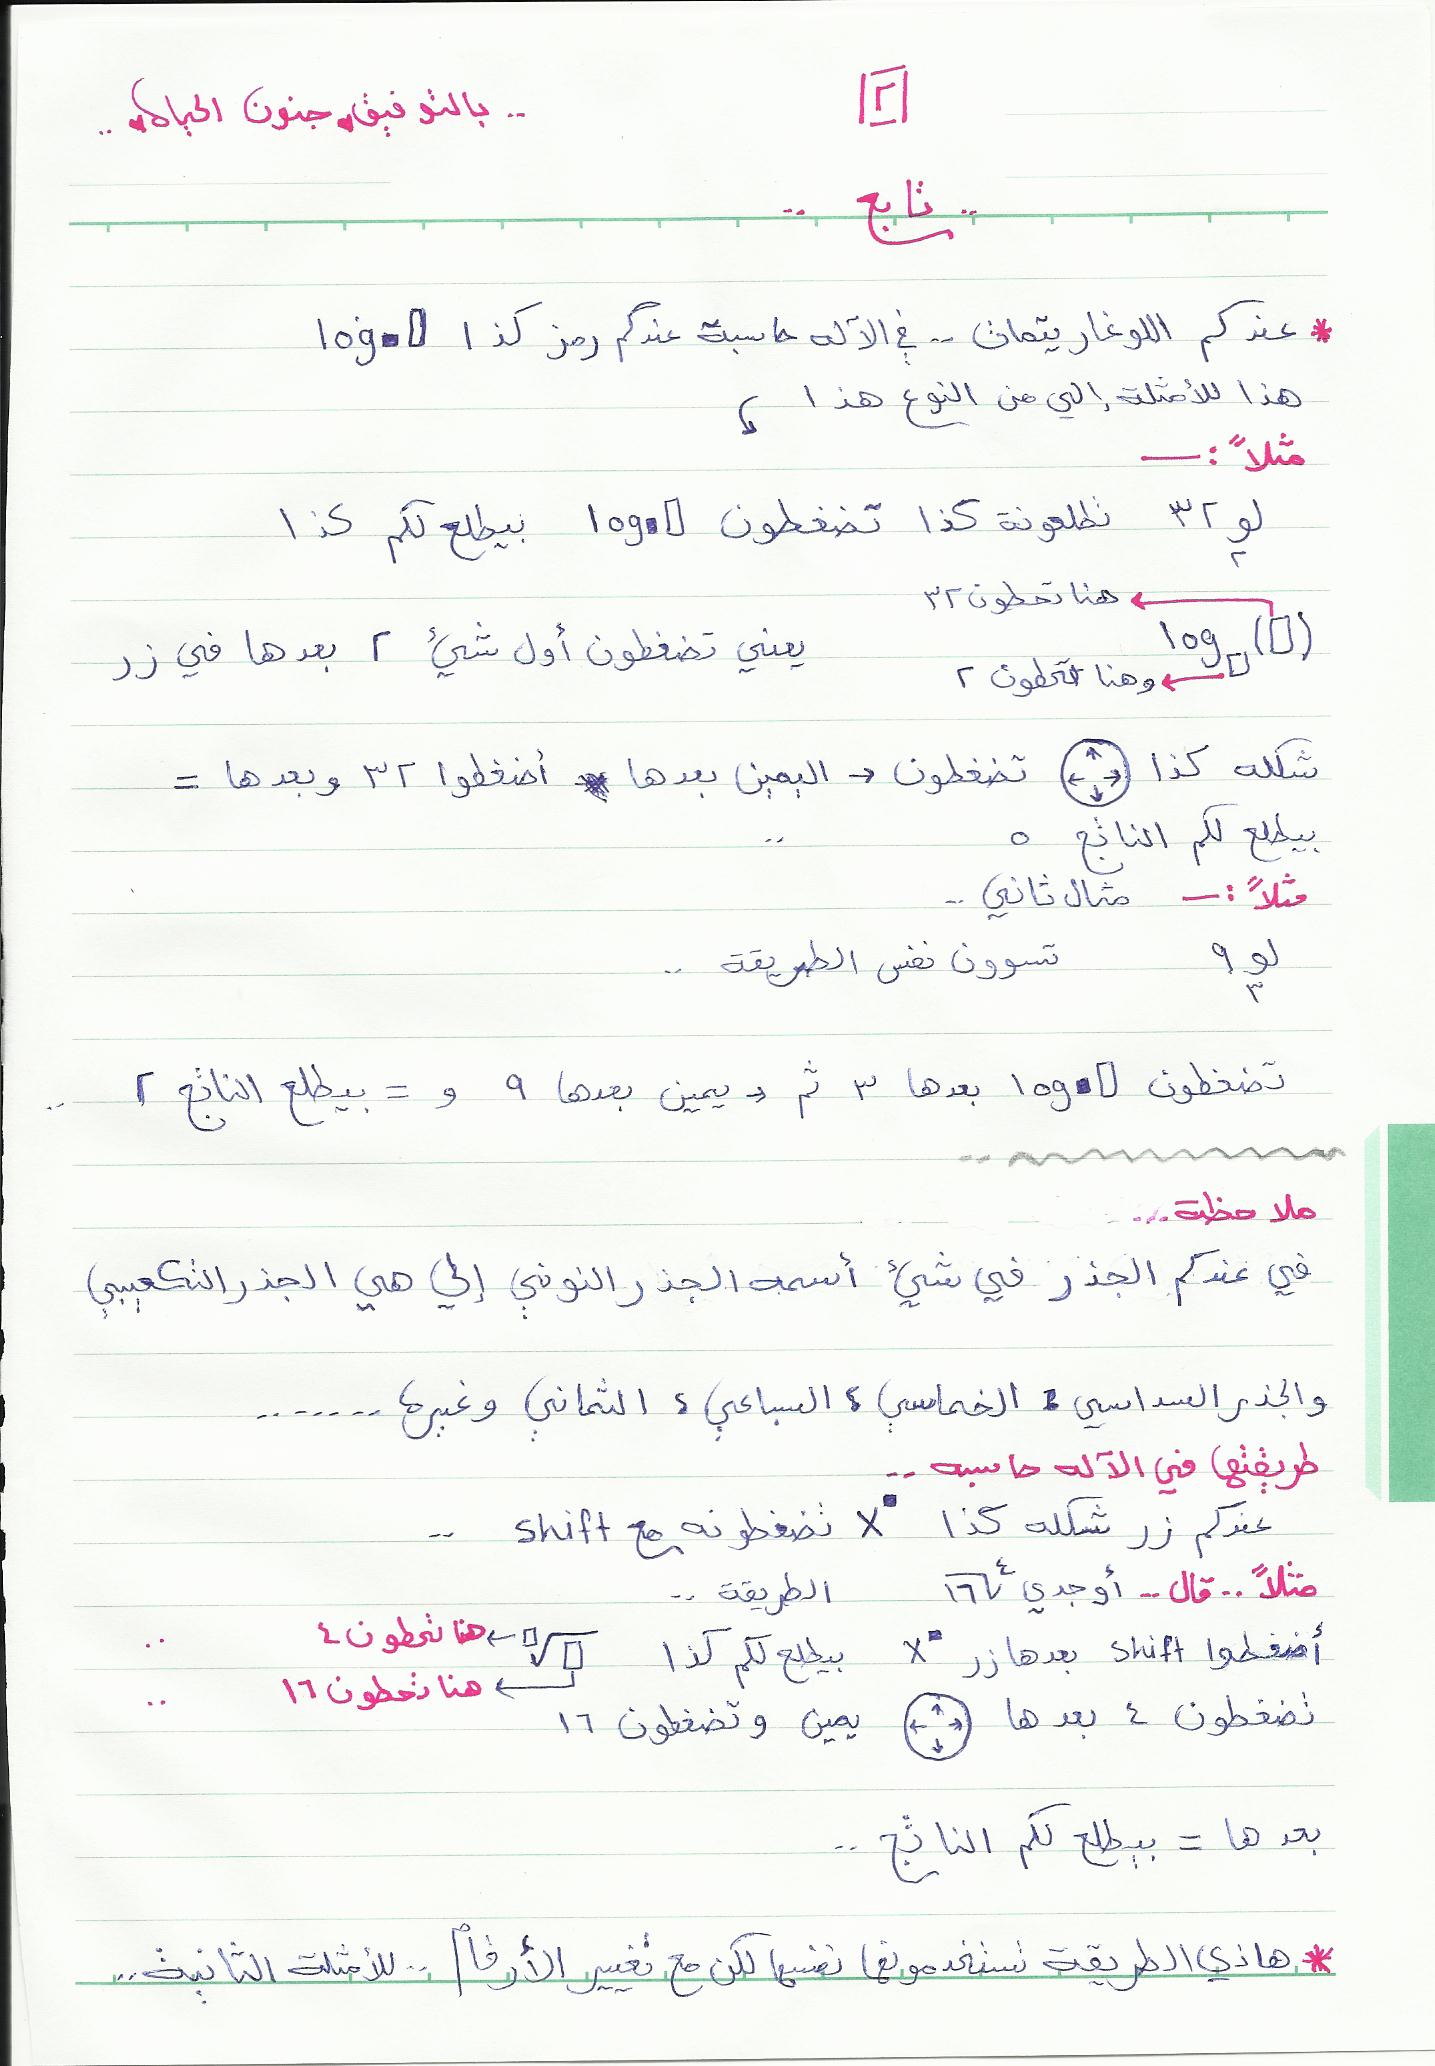 [٢]
.. بالتوفيق، جنون الحياه ..
.. تابع ..
* عندكم اللوغاريتمات .. في الآله حاسبة عندكم رمز كذا log▪▯
هذا للأمثلة إلي من النوع هذا
مثلاً :—
لو٢ ٣٢ تطلعونة كذا تضغطون log▪▯ بيطلع لكم كذا
هنا تحطون ٣٢
log▯(▯) يعني تضغطون أول شيئ ٢ بعدها في زر
وهنا تحطون ٢
شكله كذا تضغطون → اليمين بعدها أضغطوا ٣٢ وبعدها =
بيطلع لكم الناتج ٥ ..
مثلاً :— مثال ثاني ..
لو٣ ٩ تسوون نفس الطريقة ..
تضغطون log▪▯ بعدها ٣ ثم → يمين بعدها ٩ و = بيطلع الناتج ٢ ..
ملاحظة ..
في عندكم الجذر في شيئ أسمه الجذر النوني إلي هي الجذر التكعيبي
والجذر السداسي ، الخماسي ، السباعي ، الثماني وغيرها ........
طريقتها في الآله حاسبه ..
عندكم زر شكله كذا x▪ تضغطونه مع shift ..
مثلاً .. قال .. أوجدي ⁴√١٦ الطريقة ..
أضغطوا shift بعدها زر x▪ بيطلع لكم كذا ▯√▯ ← هنا تحطون ٤ ..
← هنا تحطون ١٦ ..
تضغطون ٤ بعدها يمين وتضغطون ١٦
بعدها = بيطلع لكم الناتج ..
* هاذي الطريقة تستخدمونها نفسها لكن مع تغيير الأرقام .. للأمثلة الثانية ..